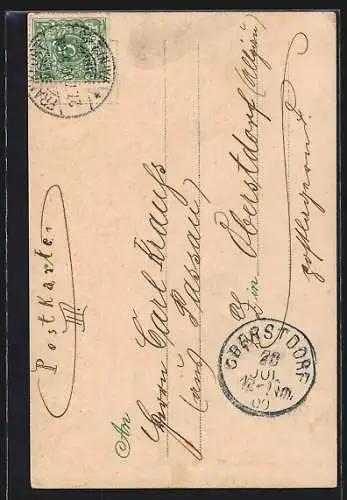 Postkarte
An
Herrn Carl Krauss
(aus Passau)
in Oberstdorf (Allgäu)
postlagernd.
OBERSTDORF
28
JUL
12-1 Nm.
00